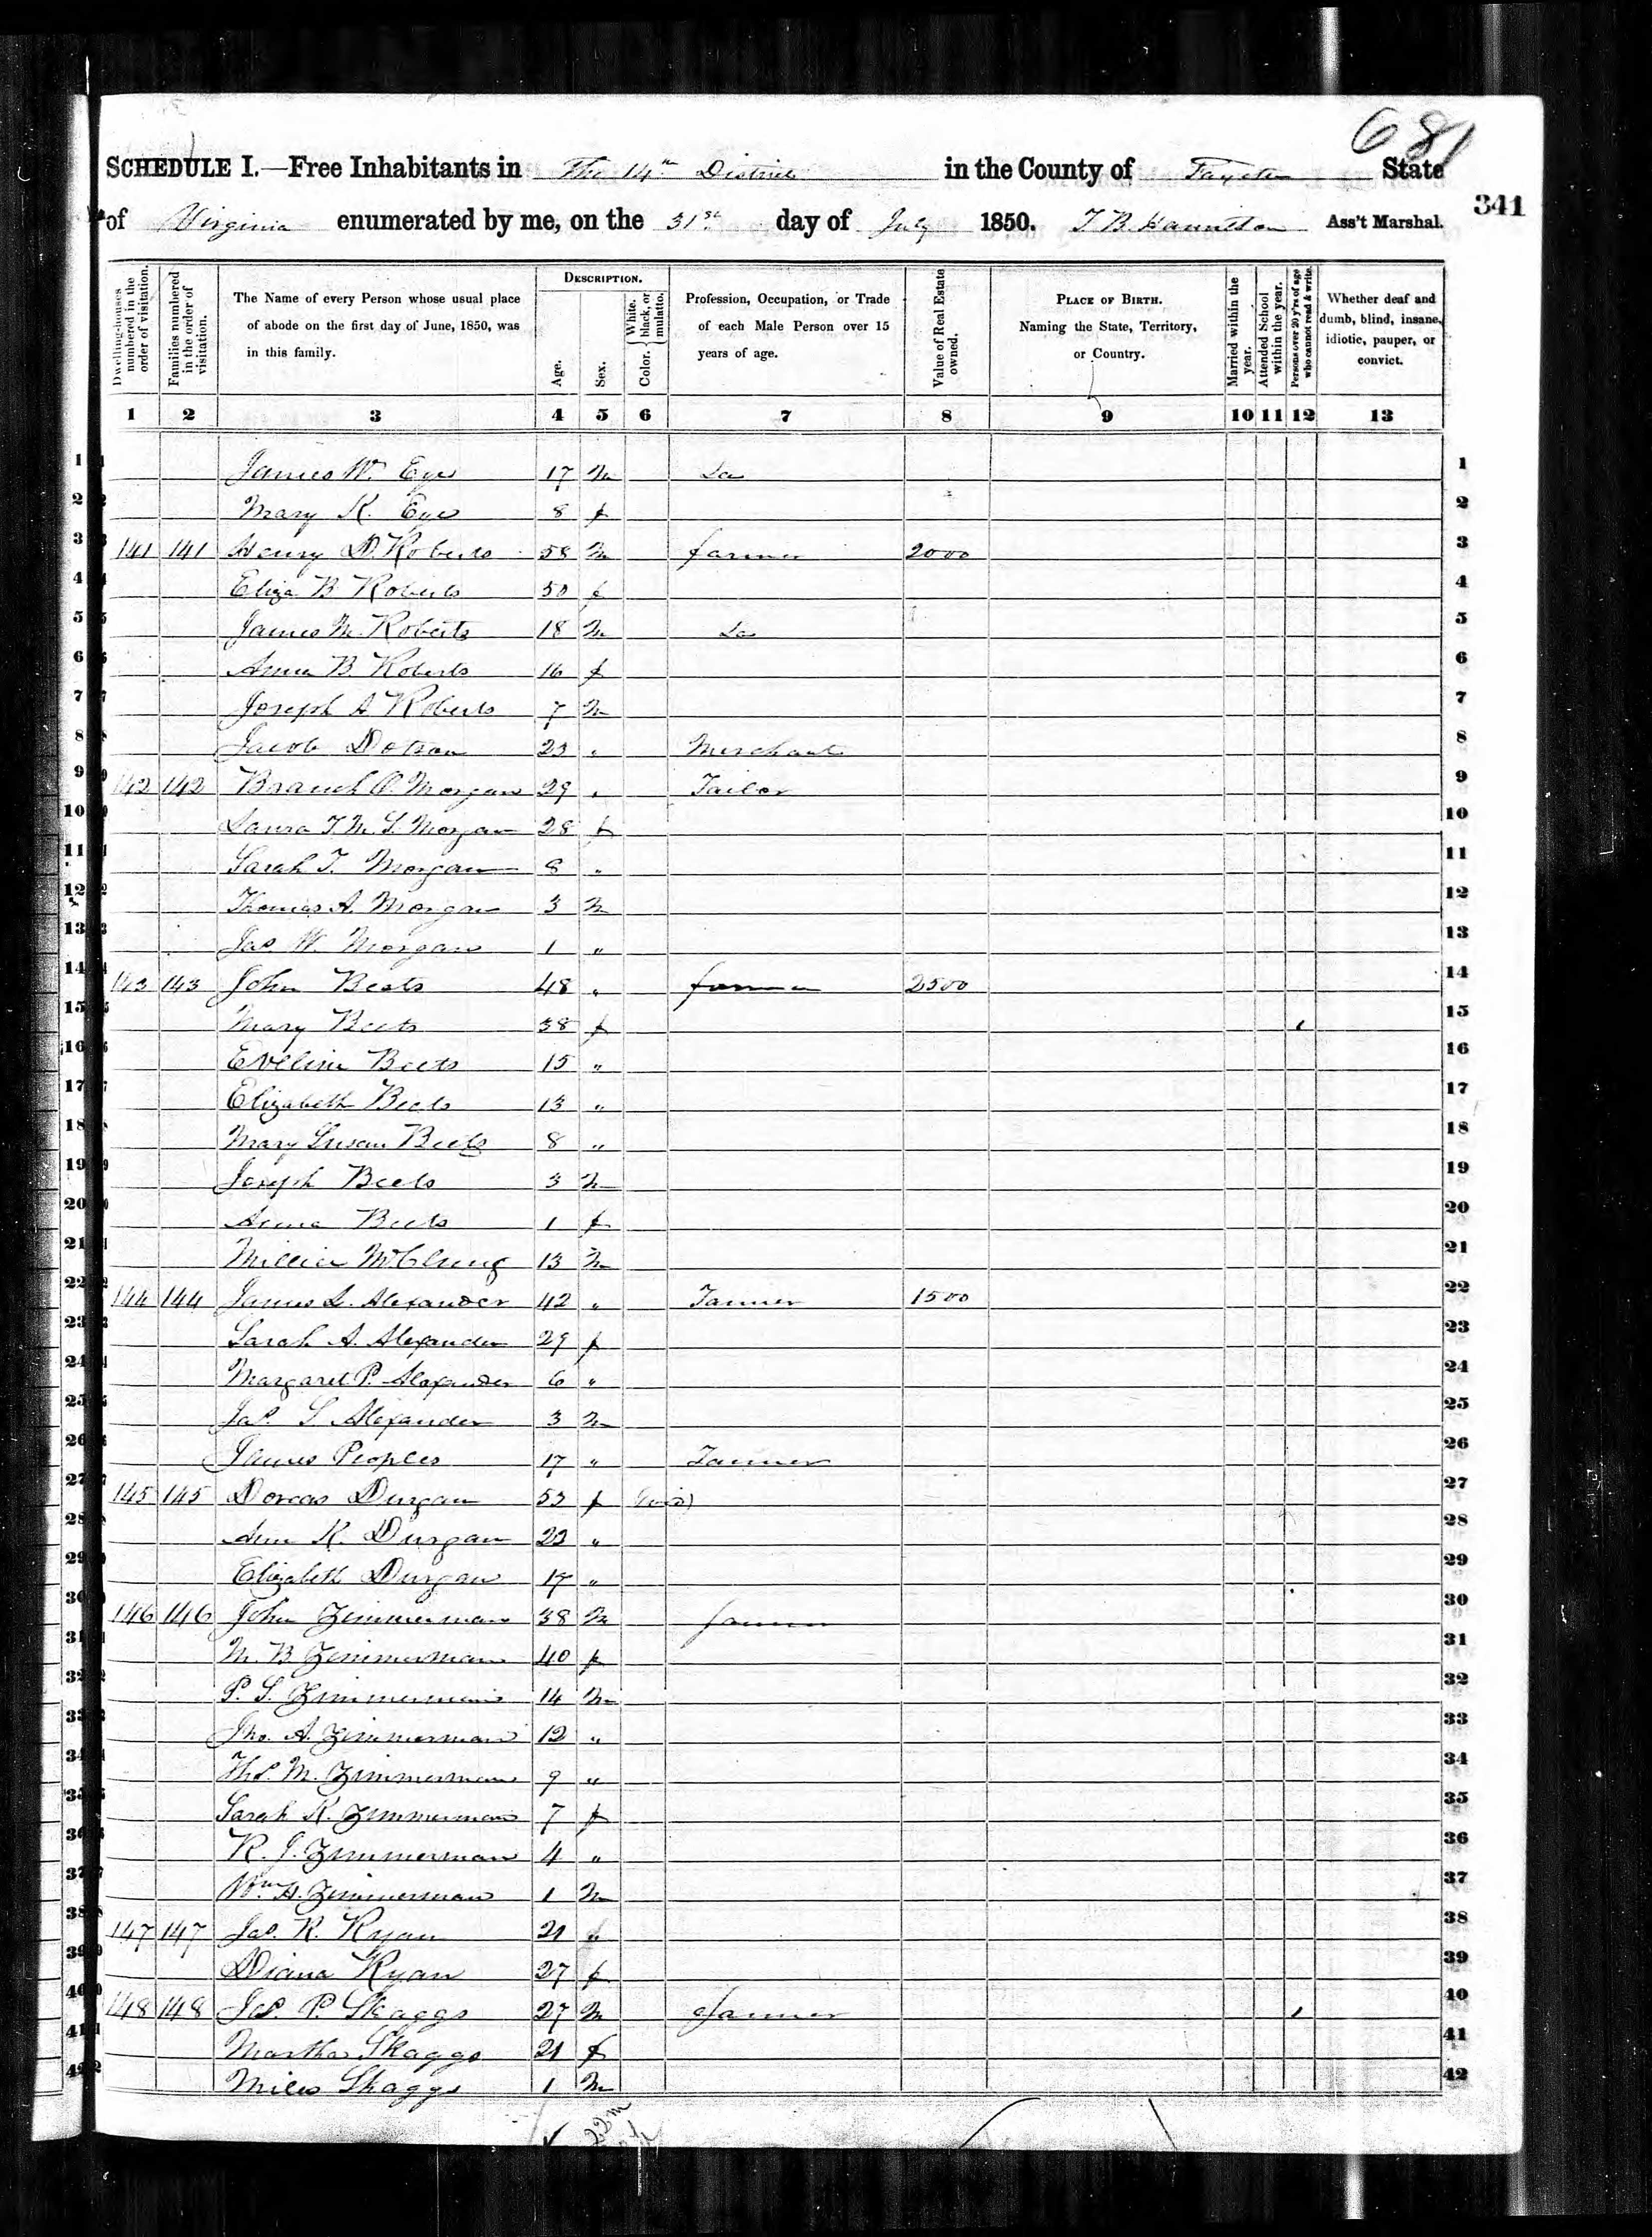 681
SCHEDULE I.—Free Inhabitants in The 14th District in the County of Fayette State
341
of Virginia enumerated by me, on the 31st day of July 1850. T B Hamilton Ass't Marshal.
Dwelling-houses numbered in the order of visitation. Families numbered in the order of visitation. The Name of every Person whose usual place of abode on the first day of June, 1850, was in this family. DESCRIPTION. Age. Sex. Color. { White, black, or mulatto. Profession, Occupation, or Trade of each Male Person over 15 years of age. Value of Real Estate owned. PLACE OF BIRTH. Naming the State, Territory, or Country. Married within the year. Attended School within the year. Persons over 20 y'rs of age who cannot read & write. Whether deaf and dumb, blind, insane, idiotic, pauper, or convict.
1 2 3 4 5 6 7 8 9 10 11 12 13
1 James W. Eye 17 m Do 1
2 Mary K. Eye 8 f 2
3 141 141 Henry D. Roberts 58 m farmer 2000 3
4 Eliza B Roberts 50 f 4
5 James M. Roberts 18 m Do 5
6 Anna B. Roberts 16 f 6
7 Joseph A Roberts 7 m 7
8 Jacob Dotson 23 " Merchant 8
9 142 142 Branch O. Morgan 29 " Tailor 9
10 Laura T. M. S. Morgan 28 f 10
11 Sarah T. Morgan 8 " 11
12 Thomas A. Morgan 3 m 12
13 Jas W. Morgan 1 " 13
14 143 143 John Beets 48 " farmer 2500 14
15 Mary Beets 38 f 1 15
16 Eveline Beets 15 " 16
17 Elizabeth Beets 13 " 17
18 Mary Susan Beets 8 " 18
19 Joseph Beets 3 m 19
20 Anna Beets 1 f 20
21 McClung 13 m 21
22 144 144 James L. Alexander 42 " Tanner 1500 22
23 Sarah A. Alexander 29 f 23
24 Margaret P. Alexander 6 " 24
25 Jas. S Alexander 3 m 25
26 James Peoples 17 " Tanner 26
27 145 145 Dorcas Durgan 53 f 27
28 Ann K. Durgan 23 " 28
29 Elizabeth Durgan 17 " 29
30 146 146 John Zimmerman 38 m farmer 30
31 M. B Zimmerman 40 f 31
32 P. S. Zimmerman 14 m 32
33 Jno. A. Zimmerman 12 " 33
34 Ths. M. Zimmerman 9 " 34
35 Sarah K. Zimmerman 7 f 35
36 R. J. Zimmerman 4 " 36
37 Wm A. Zimmerman 1 m 37
38 147 147 Jas. R. Ryan 21 " 38
39 Diana Ryan 27 f 39
40 148 148 Jas. P. Skaggs 27 m farmer 1 40
41 Martha Skaggs 21 f 41
42 Miles Skaggs 1 m 42
22 m